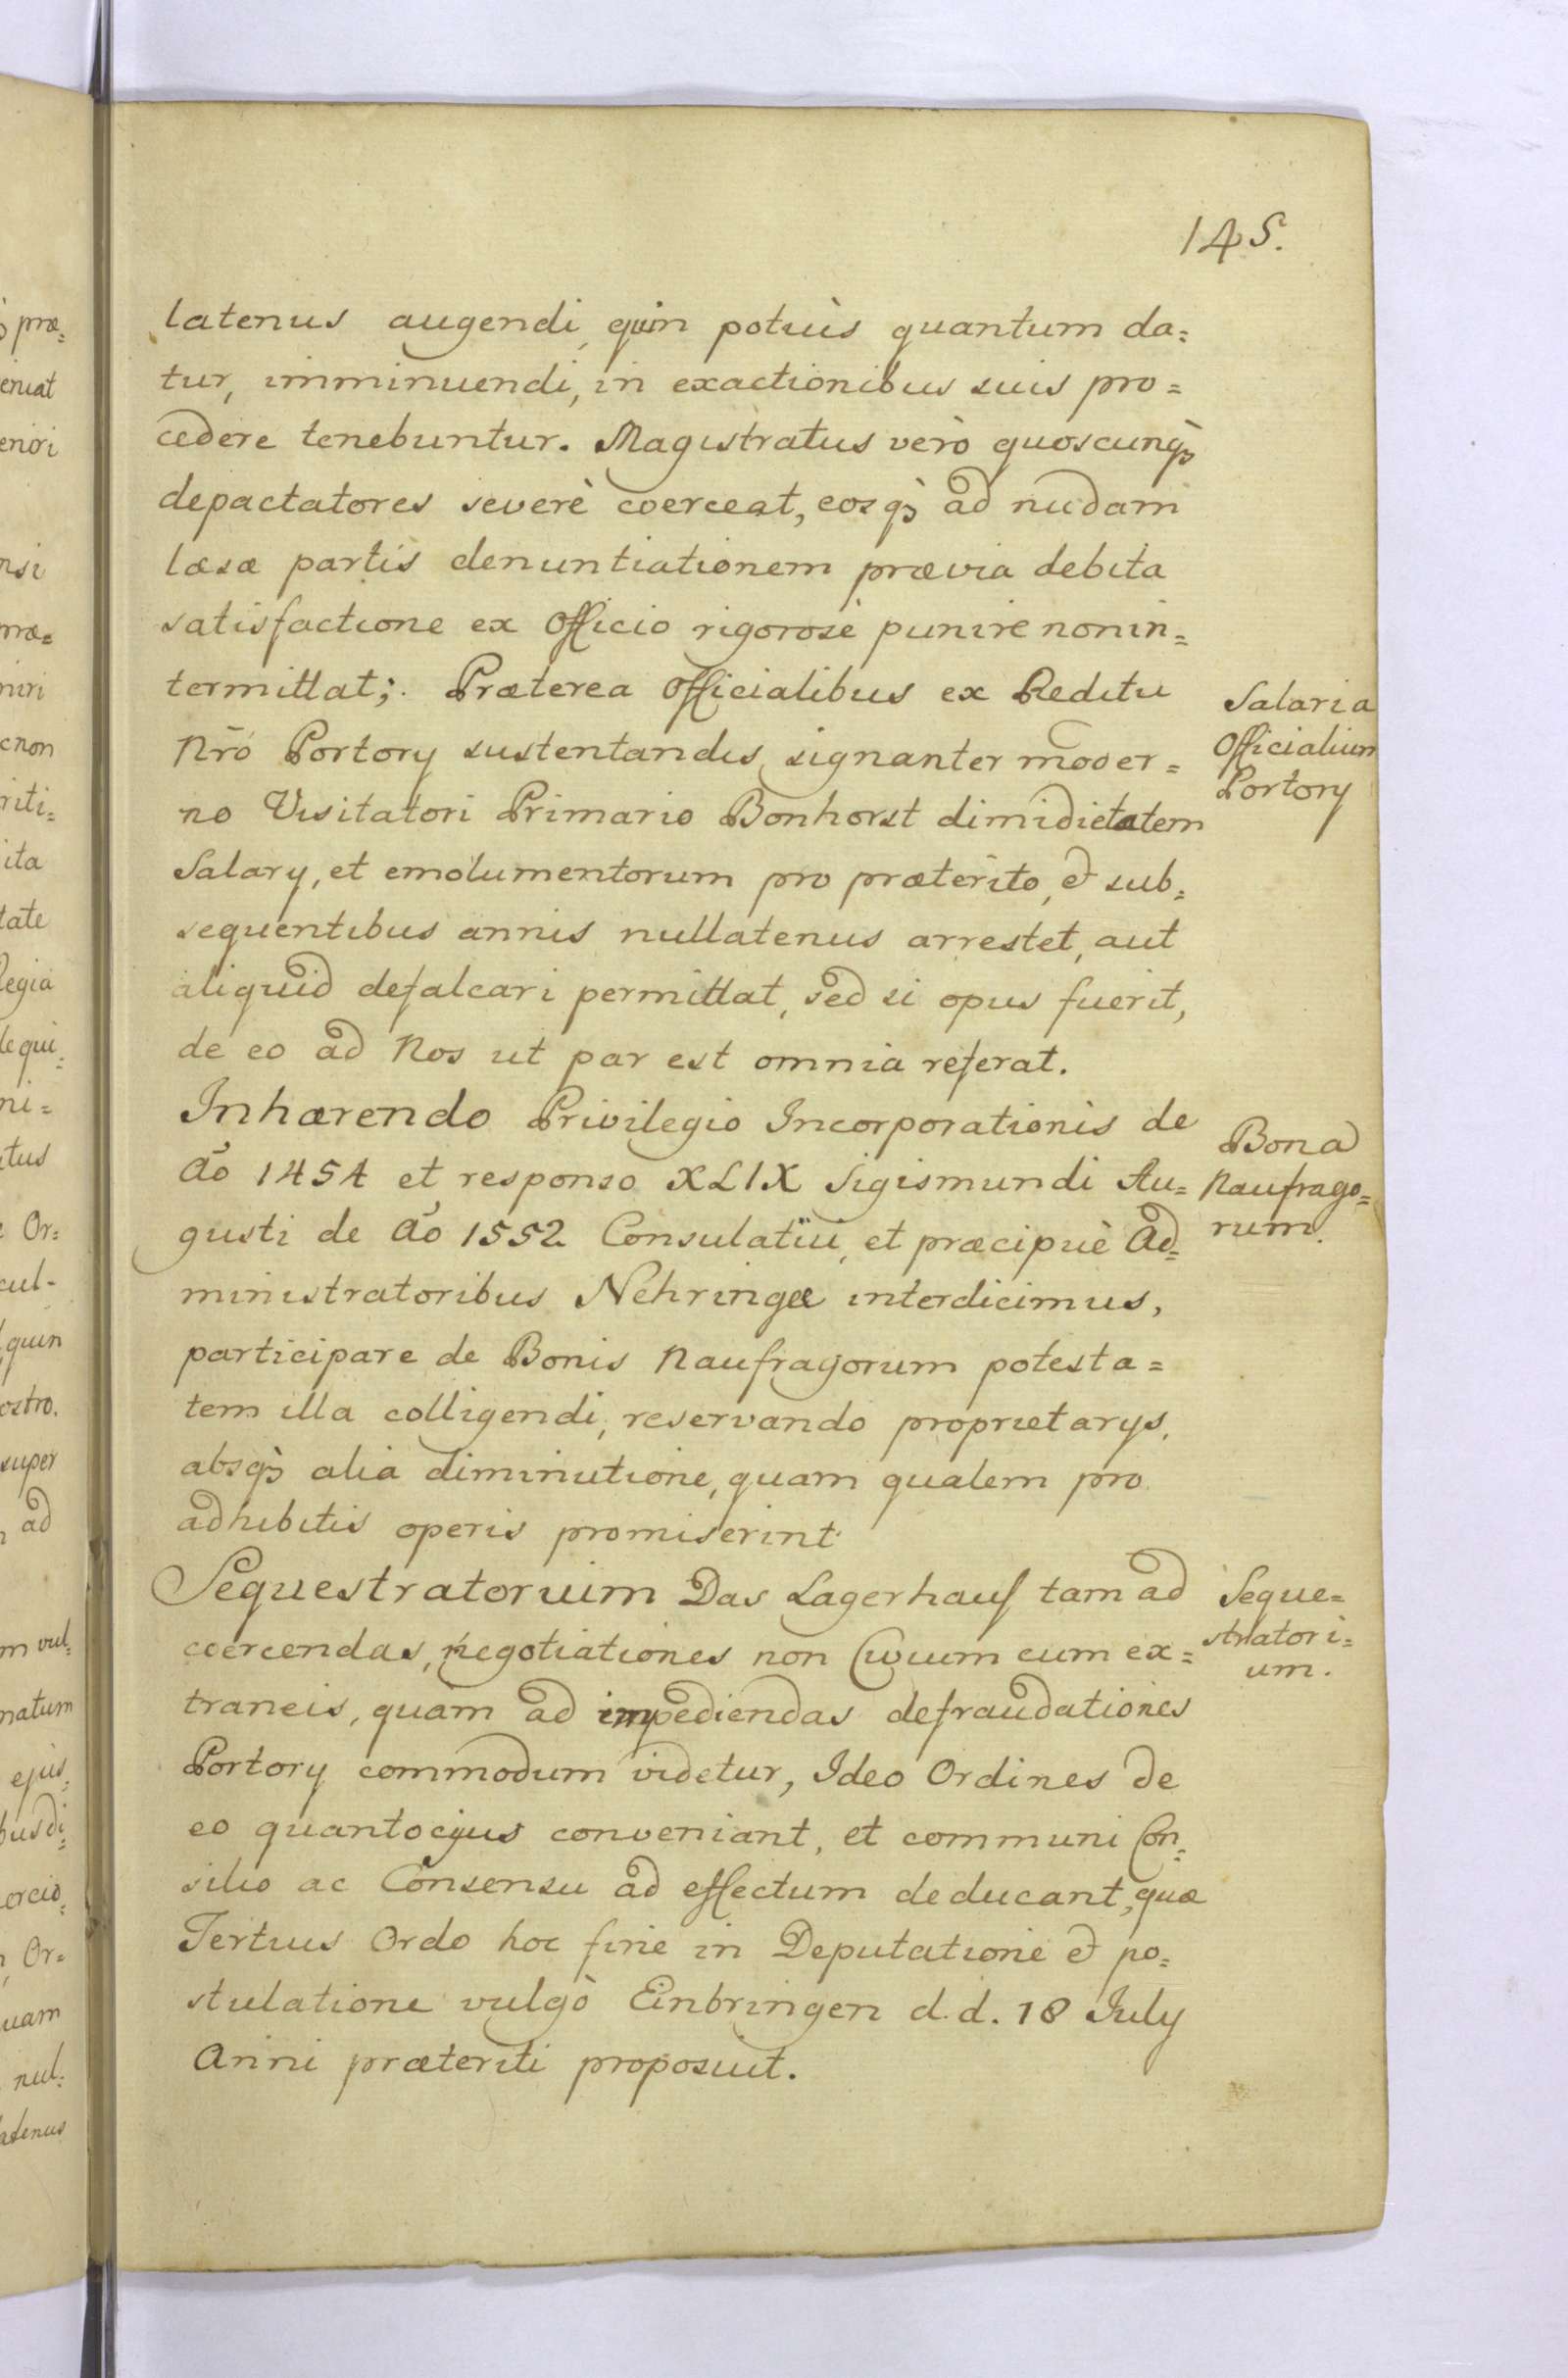 145.
latenus augendi, quin potiùs quantum da=
tur, imminuendi, in exactionibus suis pro=
cedere tenebuntur. Magistratus verò quoscunqȝ
depactatores severè coerceat, eosqȝ ad nudam
læsæ partis denuntiationem prævia debita
satisfactione ex Officio rigorosè punire nonin=
termittat; Præterea Officialibus ex Reditu
Nrō Portorÿ sustentandis, signanter moder=
no Visitatori Primario Bonhorst dimidietatem
Salarÿ, et emolumentorum pro præterito, & sub=
sequentibus annis nullatenus arrestet, aut
aliquid defalcari permittat, sed si opus fuerit,
de eo ad Nos ut par est omnia referat.
Salaria
Officialium
Portorÿ
Inhærendo Privilegio Incorporationis de
Aō 1454 et responso XLIX Sigismundi Au=
gusti de Aō 1552 Consulatui, et præcipuè Ad=
ministratoribus Nehringæ interdicimus,
participare de Bonis Naufragorum potesta=
tem illa colligendi, reservando proprietarÿs,
absqȝ alia diminutione, quam qualem pro
adhibitis operis promiserint
Bona
Naufrago=
rum.
Sequestratorium Das Lagerhauß tam ad
coercendas, negotiationes non Civium cum ex=
traneis, quam ad impediendas defraudationes
Portorÿ commodum videtur, Ideo Ordines de
eo quantocÿus conveniant, et communi Con=
silio ac Consensu ad effectum deducant, quæ
Tertius Ordo hoc fine in Deputatione & po=
stulatione vulgò Einbringen d. d. 18 July
Anni præteriti proposuit.
Seque=
stratori=
um.